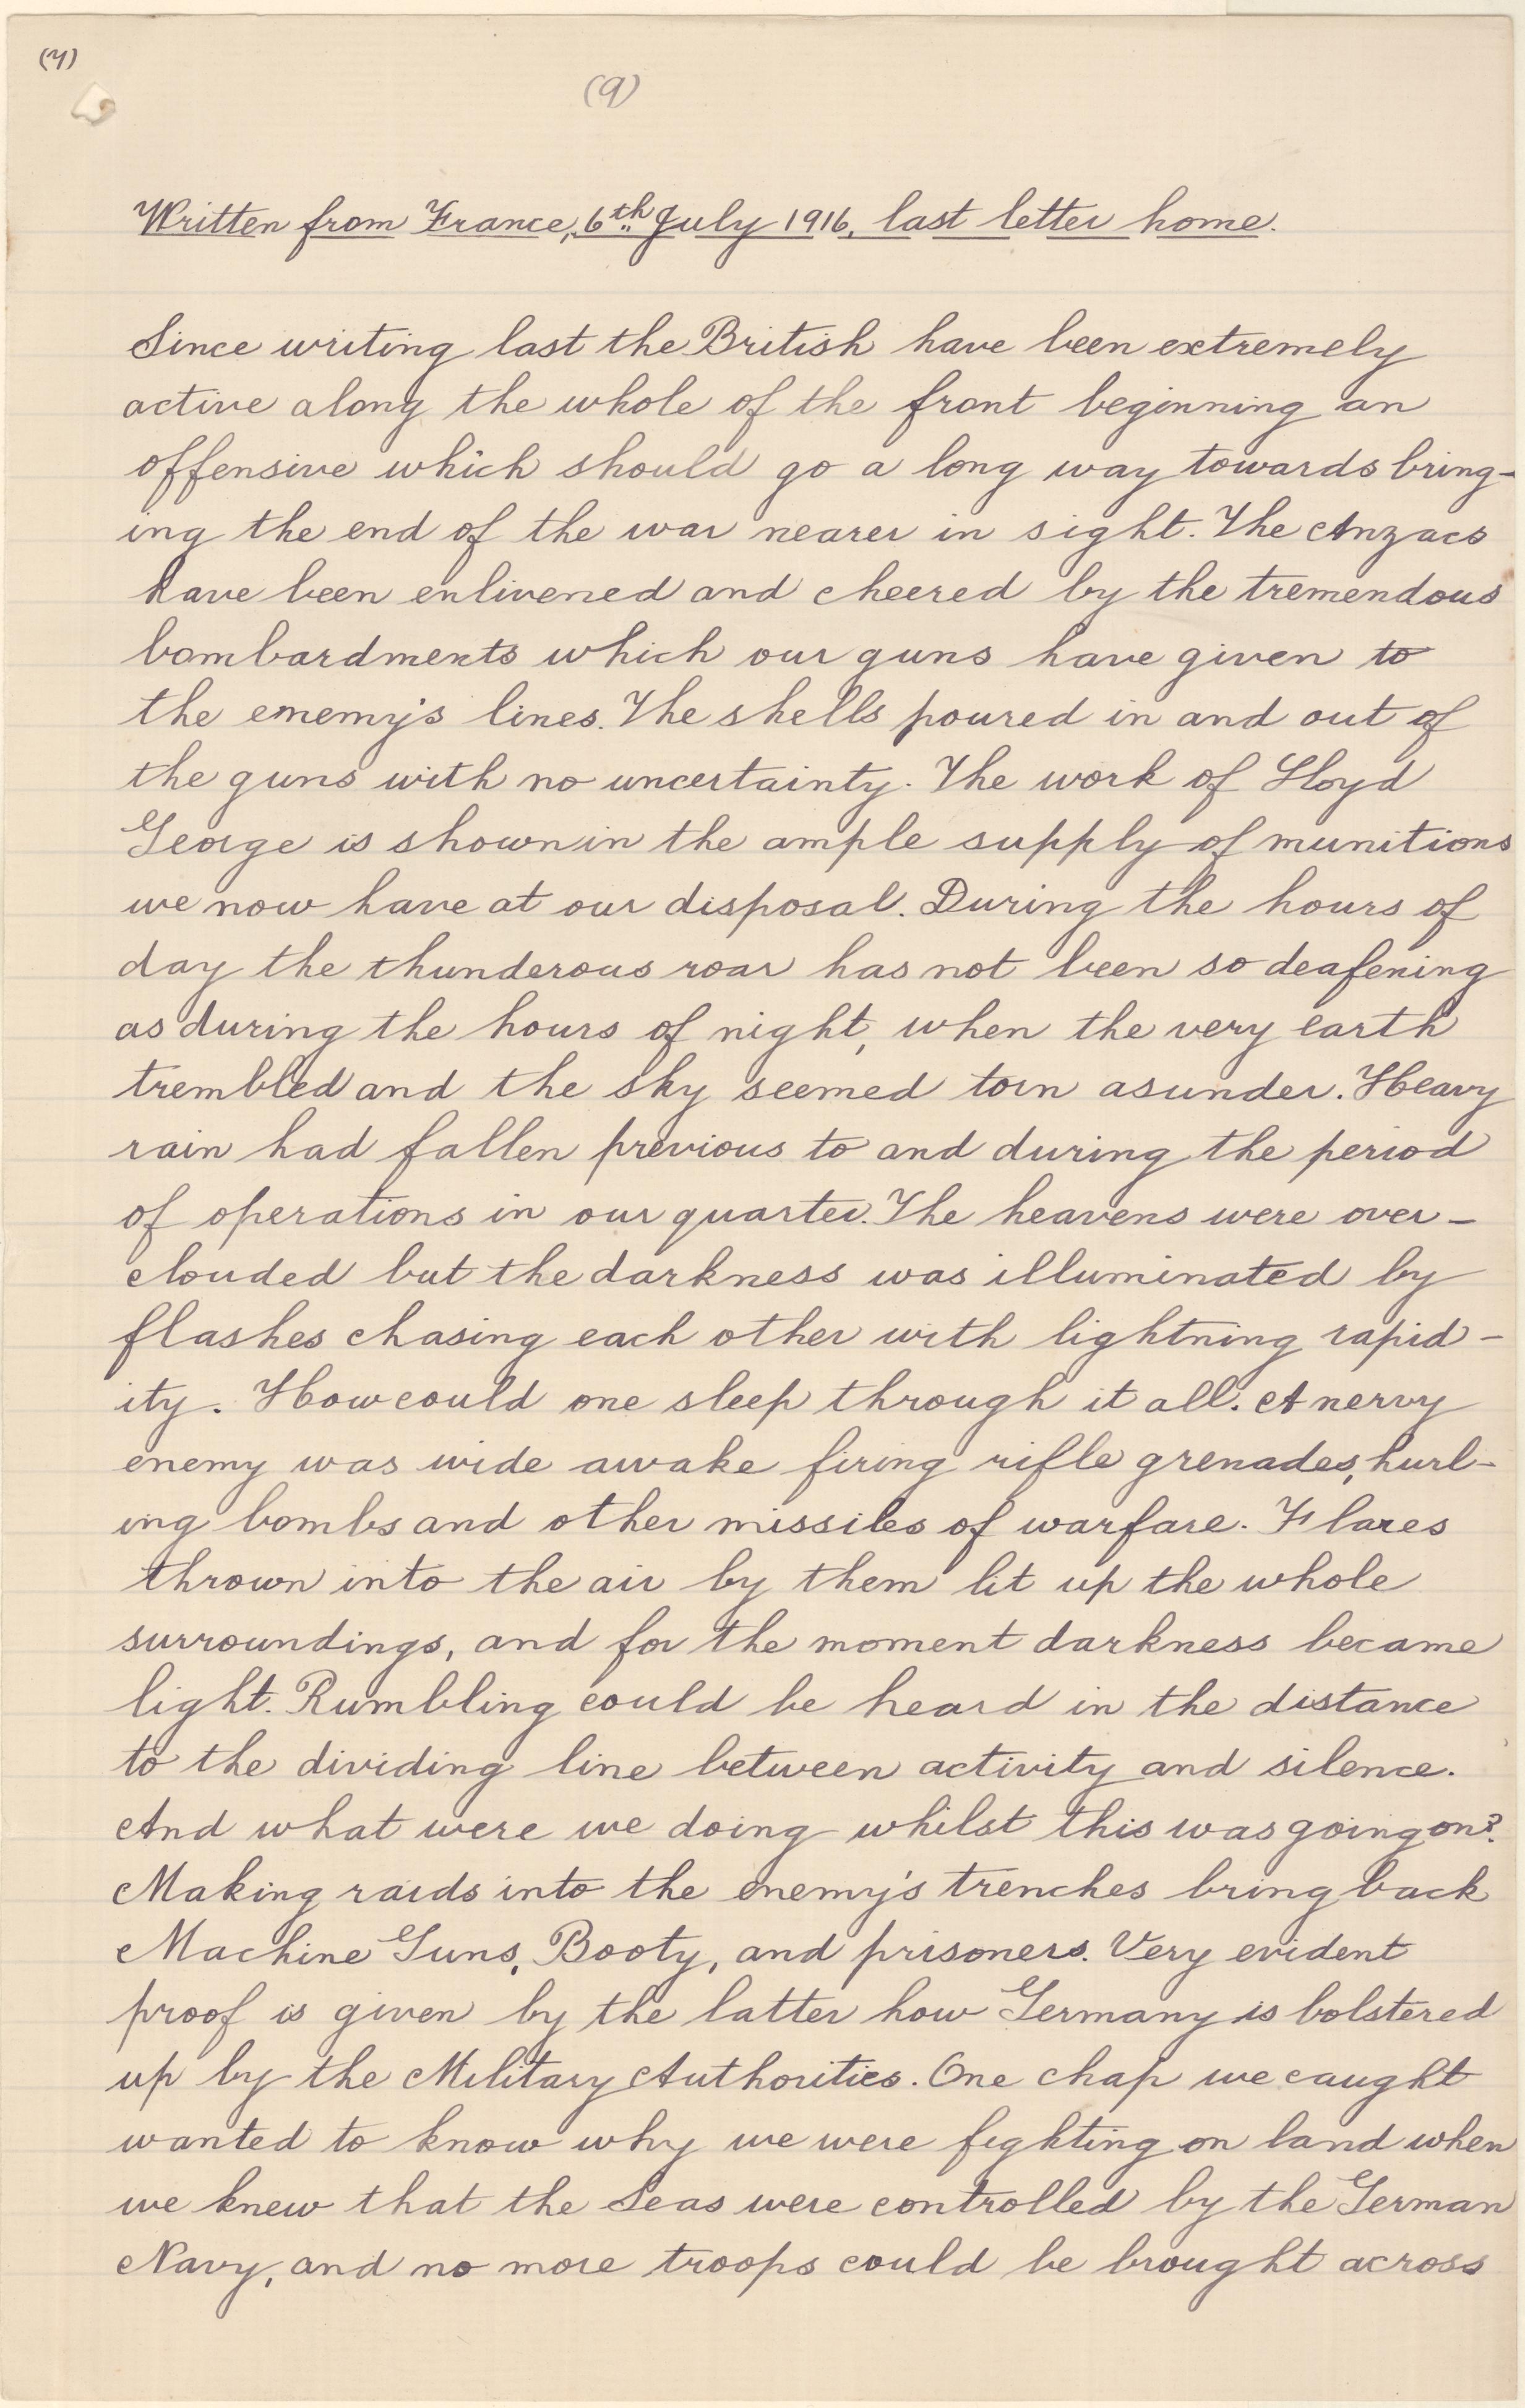 (7)
(9)
Written from France, 6th July 1916, last letter home.
Since writing last the British have been extremely
active along the whole of the front beginning an
offensive which should go a long way towards bring-
ing the end of the war nearer in sight. The Anzacs
have been enlivened and cheered by the tremendous
bombardments which our guns have given to
the enemy's lines. The shells poured in and out of
the guns with no uncertainty. The work of Lloyd
George is shown in the ample supply of munitions
we now have at our disposal. During the hours of
day the thunderous roar has not been so deafening
as during the hours of night, when the very earth
trembled and the sky seemed torn asunder. Heavy
rain had fallen previous to and during the period
of operations in our quarter. The heavens were over-
clouded but the darkness was illuminated by
flashes chasing each other with lightning rapid-
ity. How could one sleep through it all. A nervy
enemy was wide awake firing rifle grenades, hurl-
ing bombs and other missiles of warfare. Flares
thrown into the air by them lit up the whole
surroundings, and for the moment darkness became
light. Rumbling could be heard in the distance
to the dividing line between activity and silence.
And what were we doing whilst this was going on?
Making raids into the enemy's trenches bring back
Machine Guns, Booty, and prisoners. Very evident
proof is given by the latter how Germany is bolstered
up by the Military Authorities. One chap we caught
wanted to know why we were fighting on land when
we knew that the Seas were controlled by the German
Navy, and no more troops could be brought across